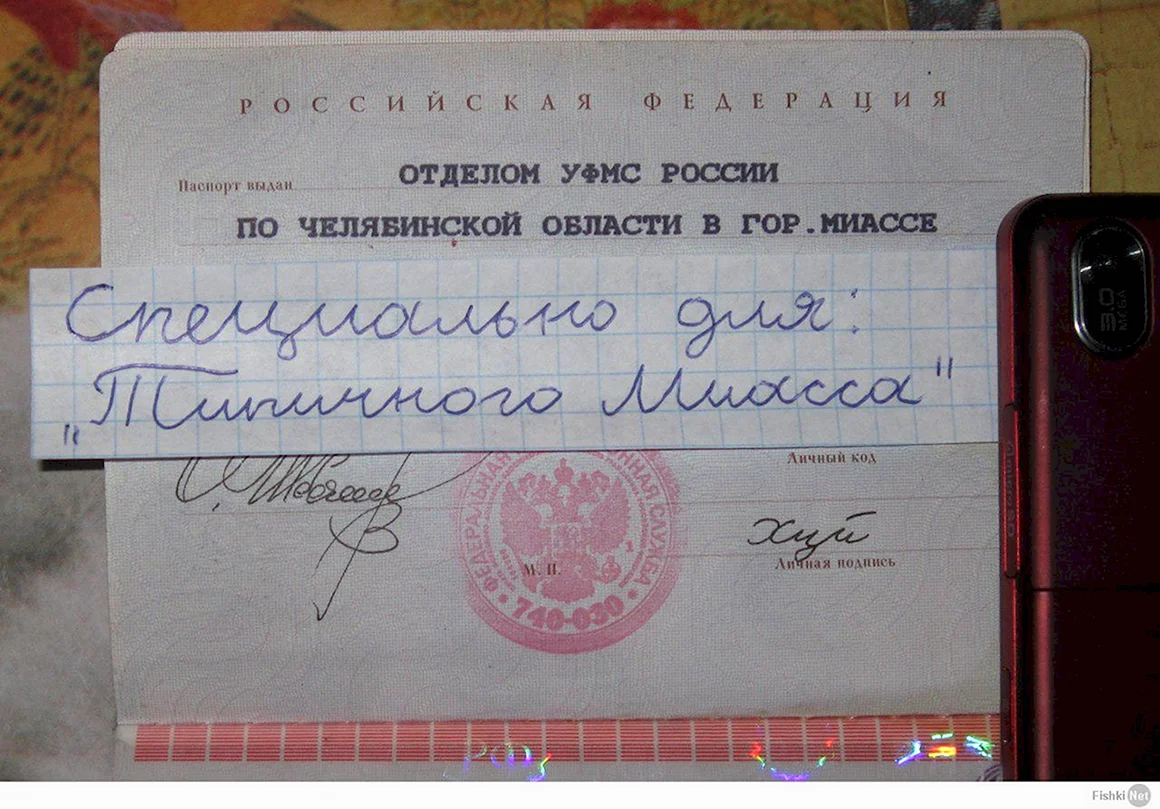 РОССИЙСКАЯ ФЕДЕРАЦИЯ
Паспорт выдан ОТДЕЛОМ УФМС РОССИИ
ПО ЧЕЛЯБИНСКОЙ ОБЛАСТИ В ГОР.МИАССЕ
Специально для:
„Типичного Миасса"
Личный код
ФЕДЕРАЛЬНАЯ СЛУЖБА
740-030
М. П.
хуй
Личная подпись
3.0
MEGA
РФ
Fishki Net